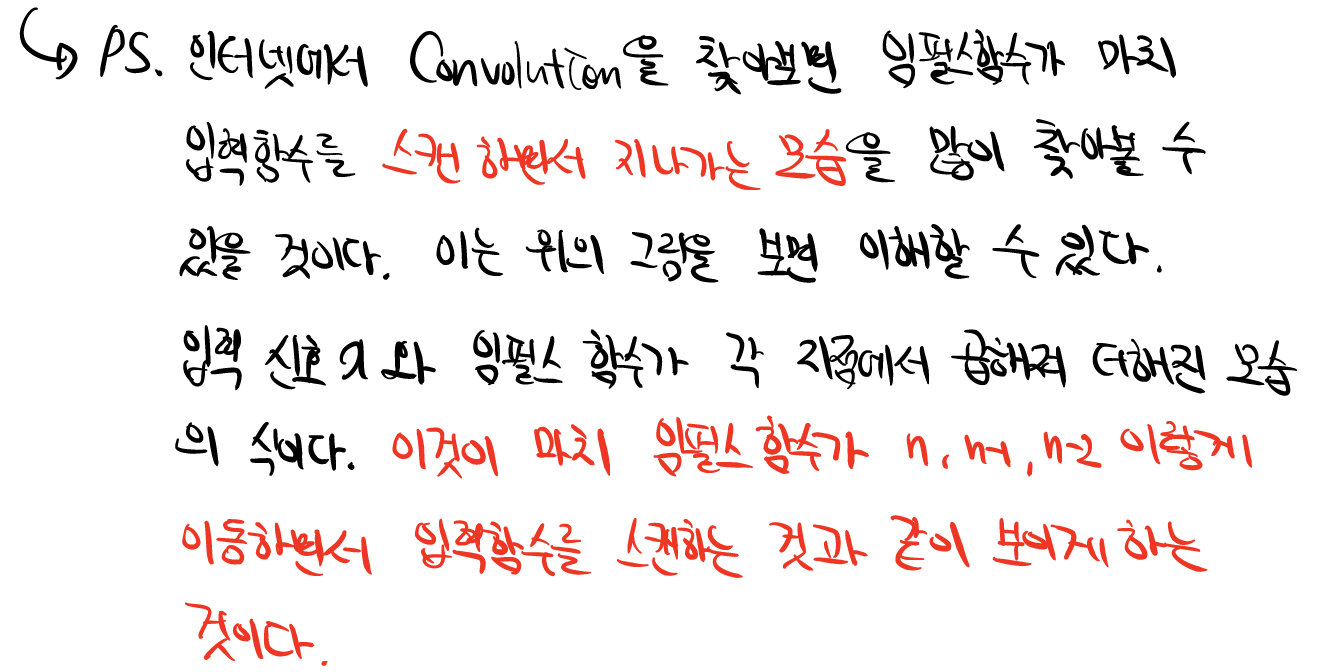 ↳ PS. 인터넷에서 Convolution을 찾아보면 임펄스함수가 마치
입력함수를 스캔 하면서 지나가는 모습을 많이 찾아볼 수
있을 것이다. 이는 위의 그림을 보면 이해할 수 있다.
입력 신호 x 와 임펄스 함수가 각 지점에서 곱해져 더해진 모습
의 식이다. 이것이 마치 임펄스 함수가 n, n-1, n-2 이렇게
이동하면서 입력함수를 스캔하는 것과 같이 보이게 하는
것이다.